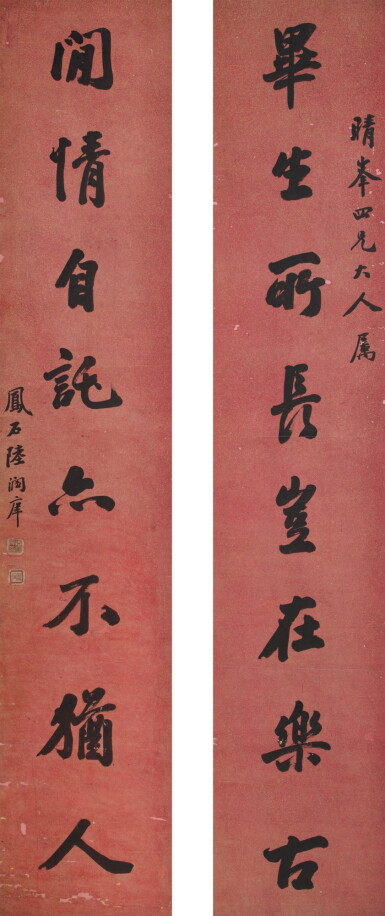 晴峯四兄大人属
畢生所長豈在樂古
閒情自託亦不猶人
鳳石陸潤庠